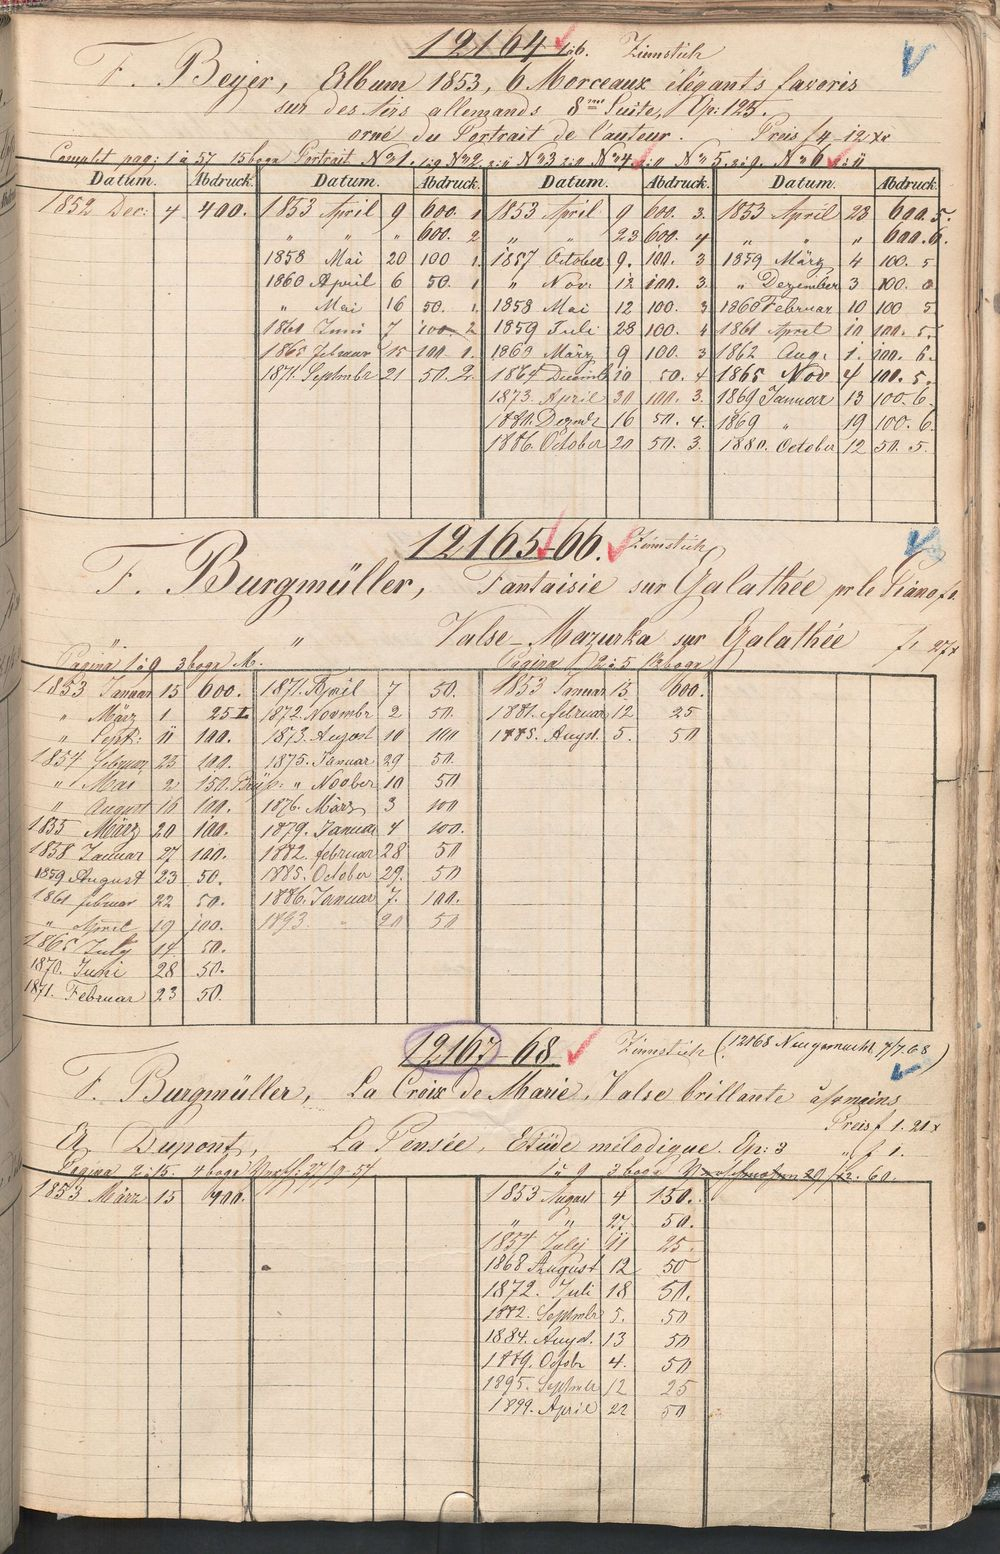 12164 1-6. Zinnstich
F. Beyer, Album 1853, 6 Morceaux élégants favoris
sur des airs allemands 8me Suite, Op: 125.
orné du Portrait de l'auteur. Preis f 4 12 xr
Complet pag: 1 à 57 15 boga Portrait No 1. No 2. No 3 No 4. No 5. No 6.
Datum. Abdruck. Datum. Abdruck. Datum. Abdruck. Datum. Abdruck.
1852 Dec: 4 400. 1853 April 9 600. 1 1853 April 9 600. 3. 1853 April 23 600. 5.
" " " 600. 2 " " 23 600. 4 " " " 600. 6.
1858 Mai 20 100 1. 1857 October 9. 100. 3 1859 März 4 100. 5
1860 April 6 50. 1 " Nov. 12 100. 3. " Dezember 3 100. 6
" Mai 16 50. 1. 1858 Mai 12 100. 3 1860 Februar 10 100 5
1861 Juni 7 100. 2 1859 Juli 28 100. 4 1861 April 10 100. 5.
1865 februar 15 100. 1. 1860 März 9 100. 3 1862 Aug. 1. 100. 6.
1871. Septmbr 21 50. 2. 1864 Decmb 10 50. 4 1865 Nov 4 100. 5.
1873. April 30 100. 3. 1869 Januar 13 100. 6.
1880. Dezmbr 16 50. 4. 1869 " 19 100. 6.
1886. October 20 50. 3. 1880. October 12 50. 5.
12165-66. Zinnstich
F. Burgmüller, Fantaisie sur Galathée pr le Piano f 1.
" " Valse-Mazurka sur Galathée f " 27 x
Pagina 1 à 9 3 boga Pagina 2 à 5
1853 Januar 15 600. 1871. April 7 50. 1853 Januar 15 600.
" März 1. 25 1872. Novmbr 2 50. 1881. februar 12 25
" Sept: 11 100. 1873. August 10 100 1885. Augst. 5. 50
1854 februar 23 100. 1875. Januar 29 50.
" Mai 2 150. " Novber 10 50
" August 16 100. 1876. März 3 100
1855 März 20 100. 1879. Januar 4 100.
1858 Januar 27 100. 1882. februar 28 50
1859 August 23 50. 1885. October 29. 50
1861 februar 22 50. 1886. Januar 7. 100.
" April 19 100. 1893. " 20 50
1865 July 14. 50.
1870. Juni 28 50.
1871. Februar 23 50.
12167-68. Zinnstich (12168 Neugemacht 7/7.68)
F. Burgmüller, La Croix de Marie, Valse brillante à 4 mains
Preis f 1. 21 x
A Dupont, La Pensée, Etüde mélodique. Op: 3 " f 1.
Pagina 2:15. 4 boga 1 à 9 3 boga
1853 März 15 400. 1853 August 4 150.
" " 27. 50.
1854 July 11 25.
1868 August 12 50
1872. Juli 18 50.
1882. Septmbr 5. 50
1884. Augst. 13 50
1889. Octobr 4. 50
1895. Septmbr 12 25
1899. April 22 50